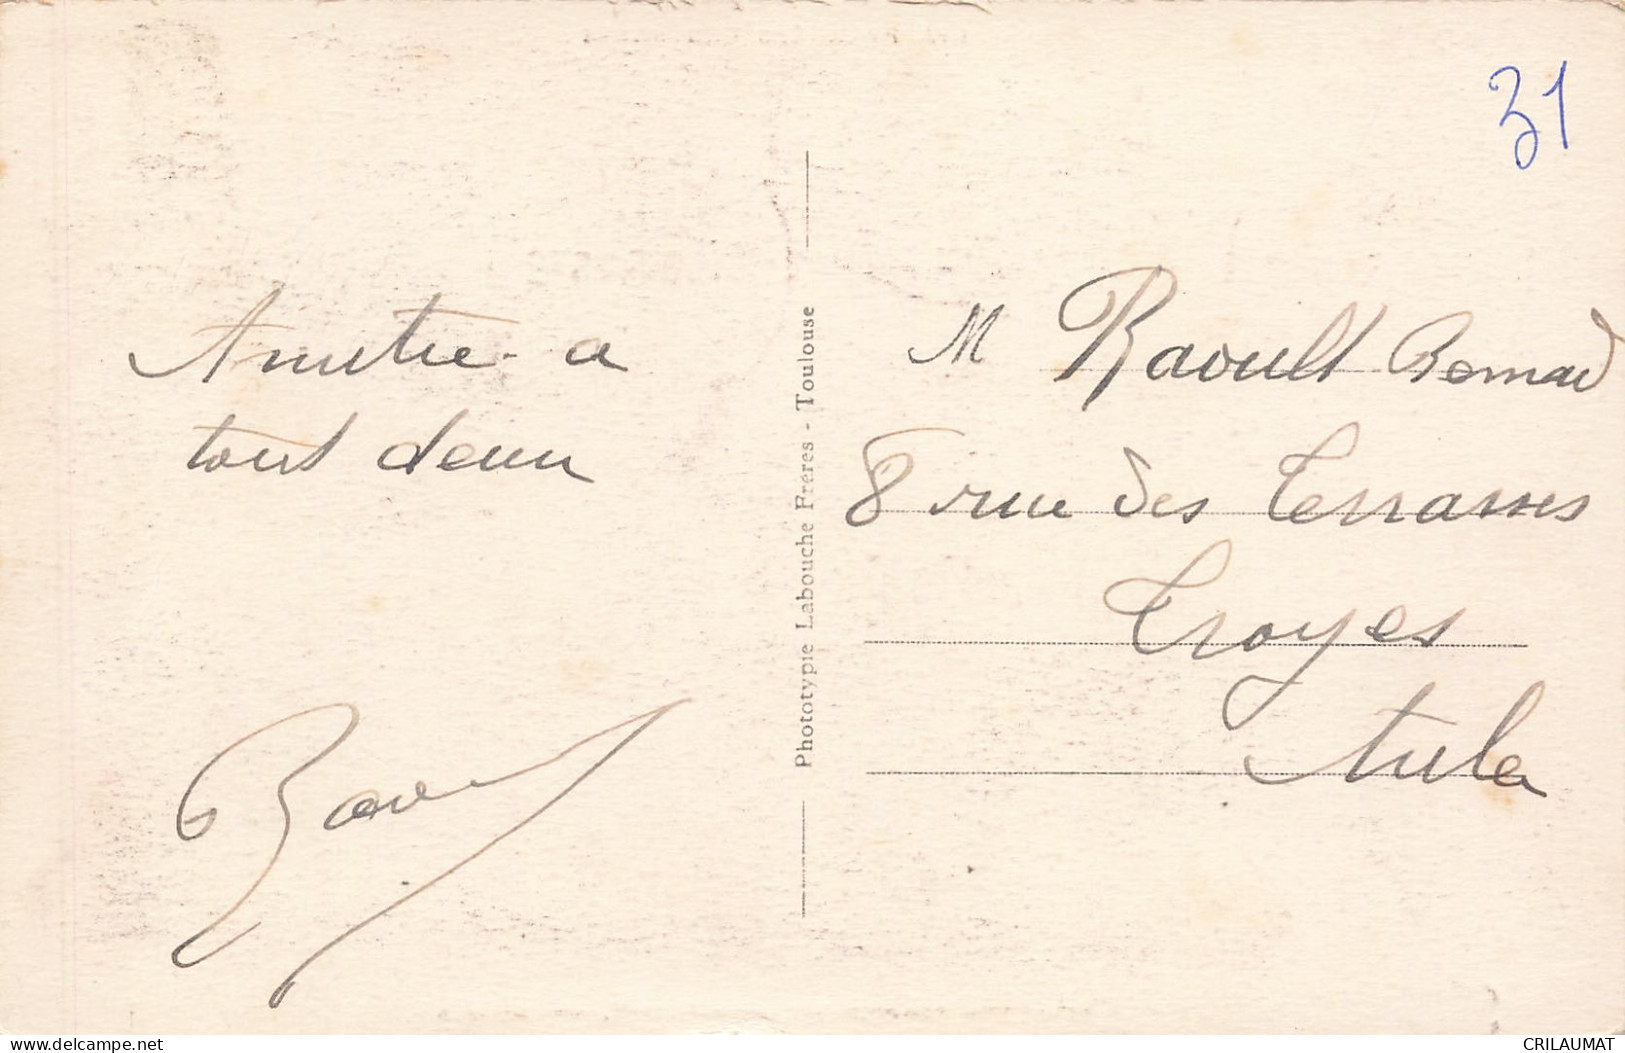 31
Amitie a
tous deux
M Raoult Bernard
8 rue des Terrasses
Troyes
Aube
Phototypie Labouche Frères - Toulouse
www.delcampe.net
CRILAUMAT